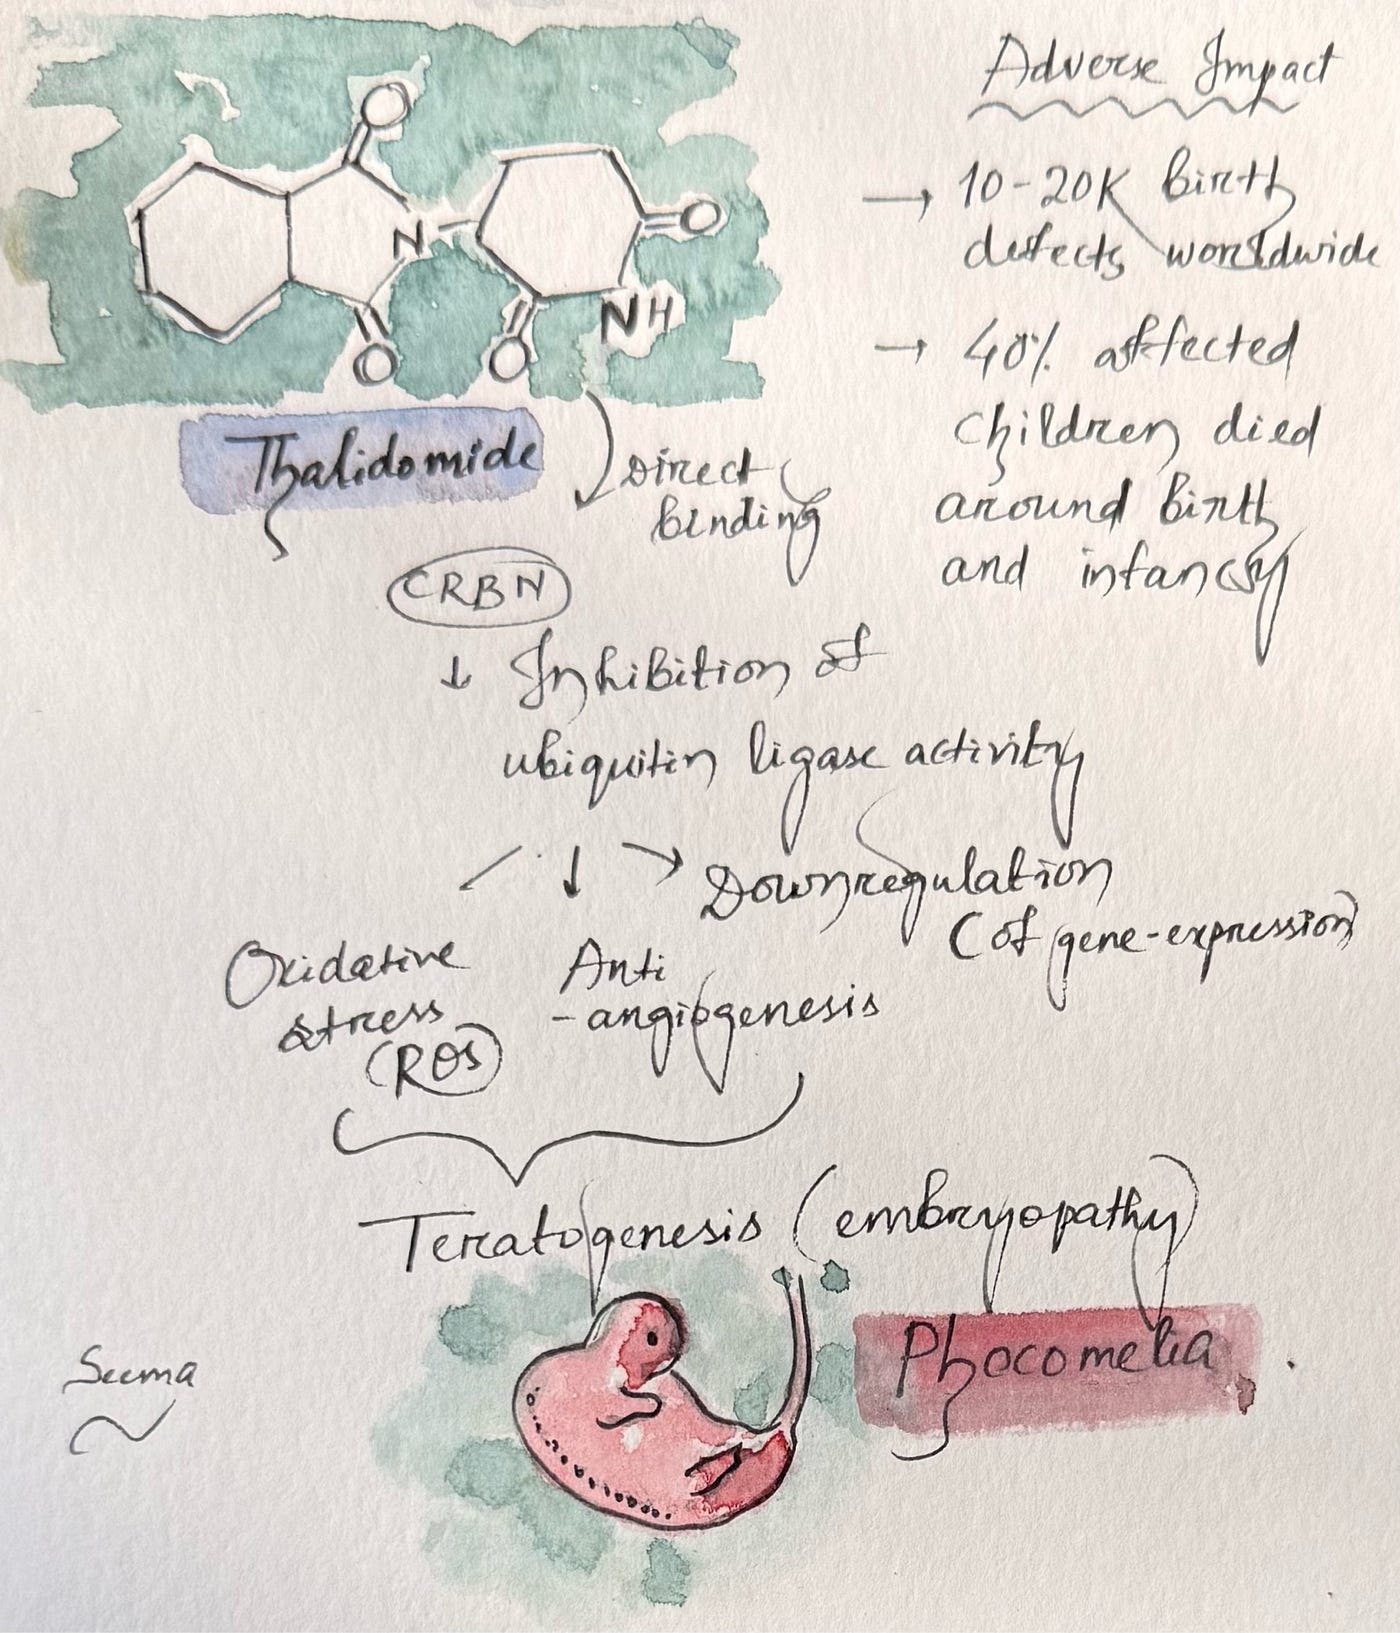 O
N
O
O
O
NH
Thalidomide
Direct
binding
CRBN
↓ Inhibition of
ubiquitin ligase activity
↓ → Downregulation
(of gene-expression)
Oxidative
stress
(ROS)
Anti
-angiogenesis
Teratogenesis (embryopathy)
Phocomelia
Seema
Adverse Impact
→ 10-20K birth
defects worldwide
→ 40% affected
children died
around birth
and infancy